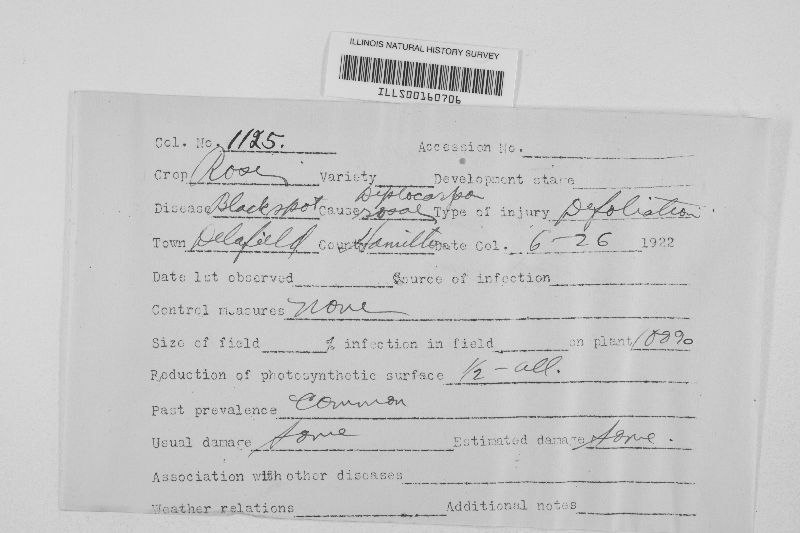 ILLINOIS NATURAL HISTORY SURVEY
ILLS00160706
Col. No. 1125. Accession No.
Crop Rose Variety Development stage
Disease Blackspot Cause Diplocarpon rosae Type of injury Defoliation
Town Delafield County Hamilton Date Col. 6-26 1922
Date 1st observed Source of infection
Control measures none
Size of field % infection in field on plant 100%
Reduction of photosynthetic surface 1/2 - all.
Past prevalence Common
Usual damage Some Estimated damage Some.
Association with other diseases
Weather relations Additional notes